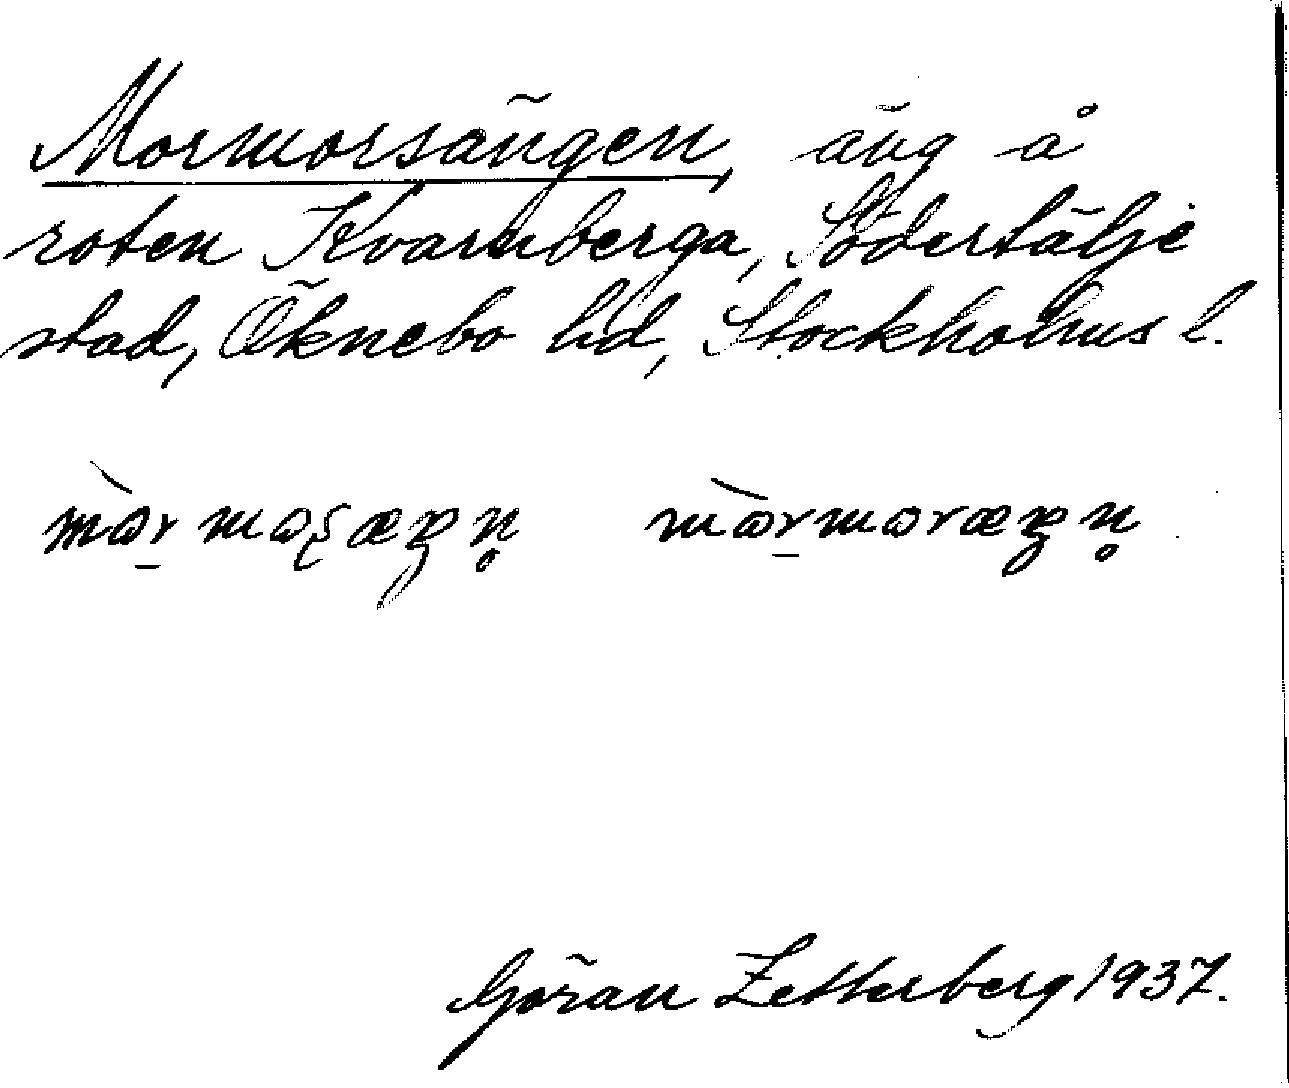 Mormorsängen, äng å
roten Kvarnberga, Södertälje
stad, Öknebo hd, Stockholms l.
Göran Zetterberg 1937.